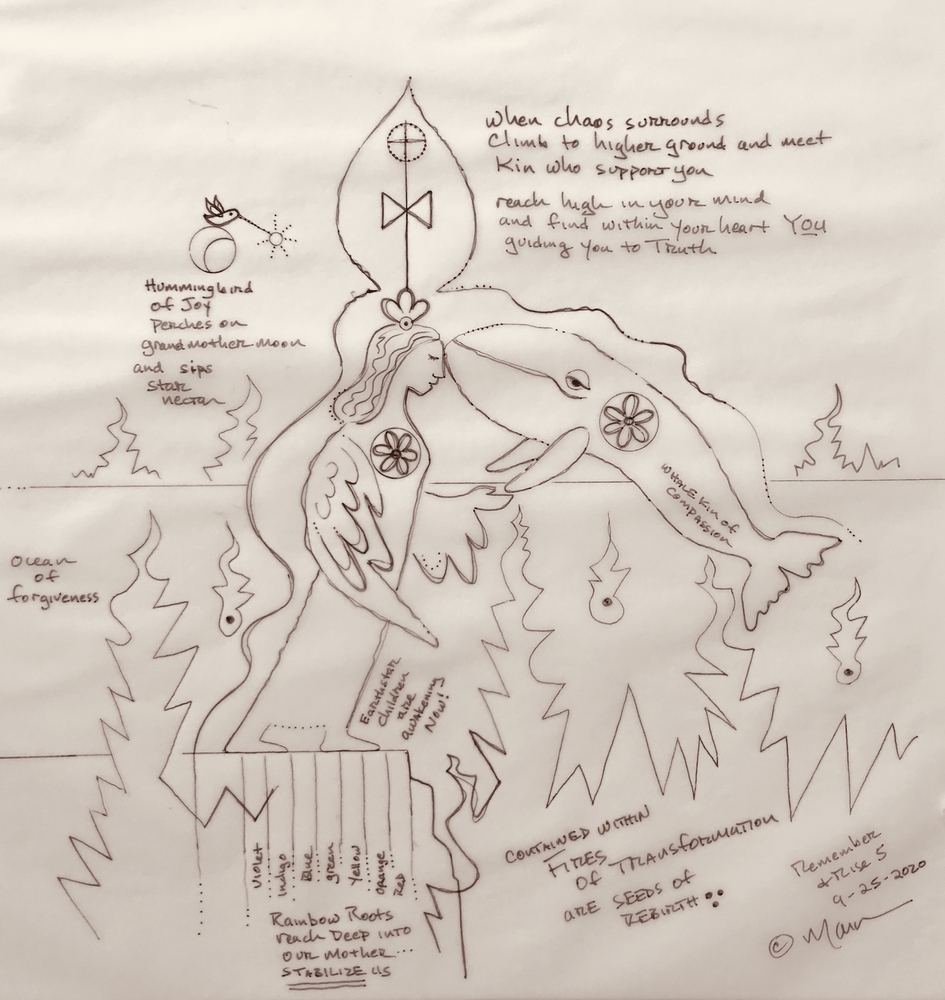 When chaos surrounds
Climb to higher ground and meet
Kin who support you
reach high in your mind
and find within your heart YOU
guiding you to Truth
Hummingbird
of Joy
Perches on
grandmother moon
and sips
star
nectar
Whale Kin of
Compassion
Ocean
of
forgiveness
Earthstar
children
are
awakening
NOW!
Violet
Indigo
Blue
green
Yellow
Orange
Red
Rainbow Roots
reach Deep into
our Mother...
STABILIZE us
CONTAINED WITHIN
FIRES
OF TRANSFORMATION
ARE SEEDS OF
REBIRTH
Remember
& Rise 5
9-25-2020
©